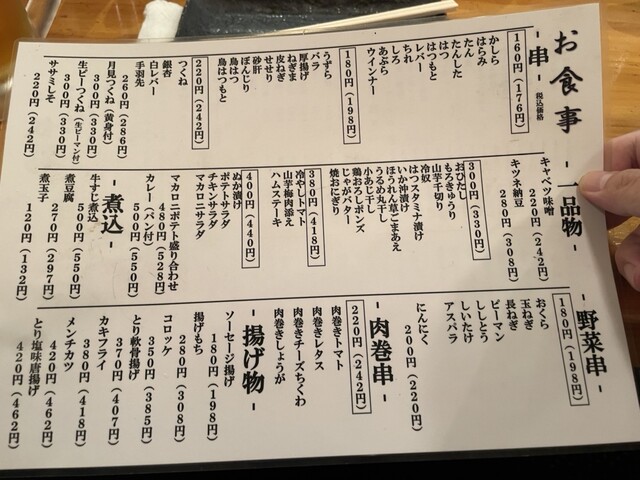 お食事
- 串 - 税込価格
160円(176円)
かしら
はらみ
たん
たんした
はつ
はつもと
レバー
ちれ
しろ
あぶら
ウインナー
180円(198円)
うずら
バラ
厚揚げ
ねぎま
皮ねぎ
せせり
砂肝
ぼんじり
鳥はつ
鳥はつもと
220円(242円)
つくね
銀杏
白レバー
手羽先
260円(286円)
月見つくね(黄身付)
300円(330円)
生ピーつくね(生ピーマン付)
300円(330円)
ササミしそ
220円(242円)
- 一品物 -
キャベツ味噌
220円(242円)
キツネ納豆
280円(308円)
300円(330円)
おひたし
もろきゅうり
山芋千切り
冷奴
はつスタミナ漬け
いか沖漬け
ほうれん草ごまあえ
うるめ丸干し
小あじ干し
鶏おろしポンズ
じゃがバター
焼おにぎり
380円(418円)
冷やしトマト
山芋梅肉添え
ハムステーキ
400円(440円)
ぬか漬け
ポテトサラダ
チキンサラダ
マカロニサラダ
マカロニポテト盛り合わせ
480円(528円)
カレー(パン付)
500円(550円)
- 煮込 -
牛すじ煮込
500円(550円)
煮豆腐
270円(297円)
煮玉子
120円(132円)
- 野菜串 -
180円(198円)
おくら
玉ねぎ
長ねぎ
ピーマン
ししとう
しいたけ
アスパラ
にんにく
200円(220円)
- 肉巻串 -
220円(242円)
肉巻きトマト
肉巻きレタス
肉巻きチーズちくわ
肉巻きしょうが
- 揚げ物 -
ソーセージ揚げ
180円(198円)
揚げもち
280円(308円)
コロッケ
350円(385円)
とり軟骨揚げ
370円(407円)
カキフライ
380円(418円)
メンチカツ
420円(462円)
とり塩味唐揚げ
420円(462円)